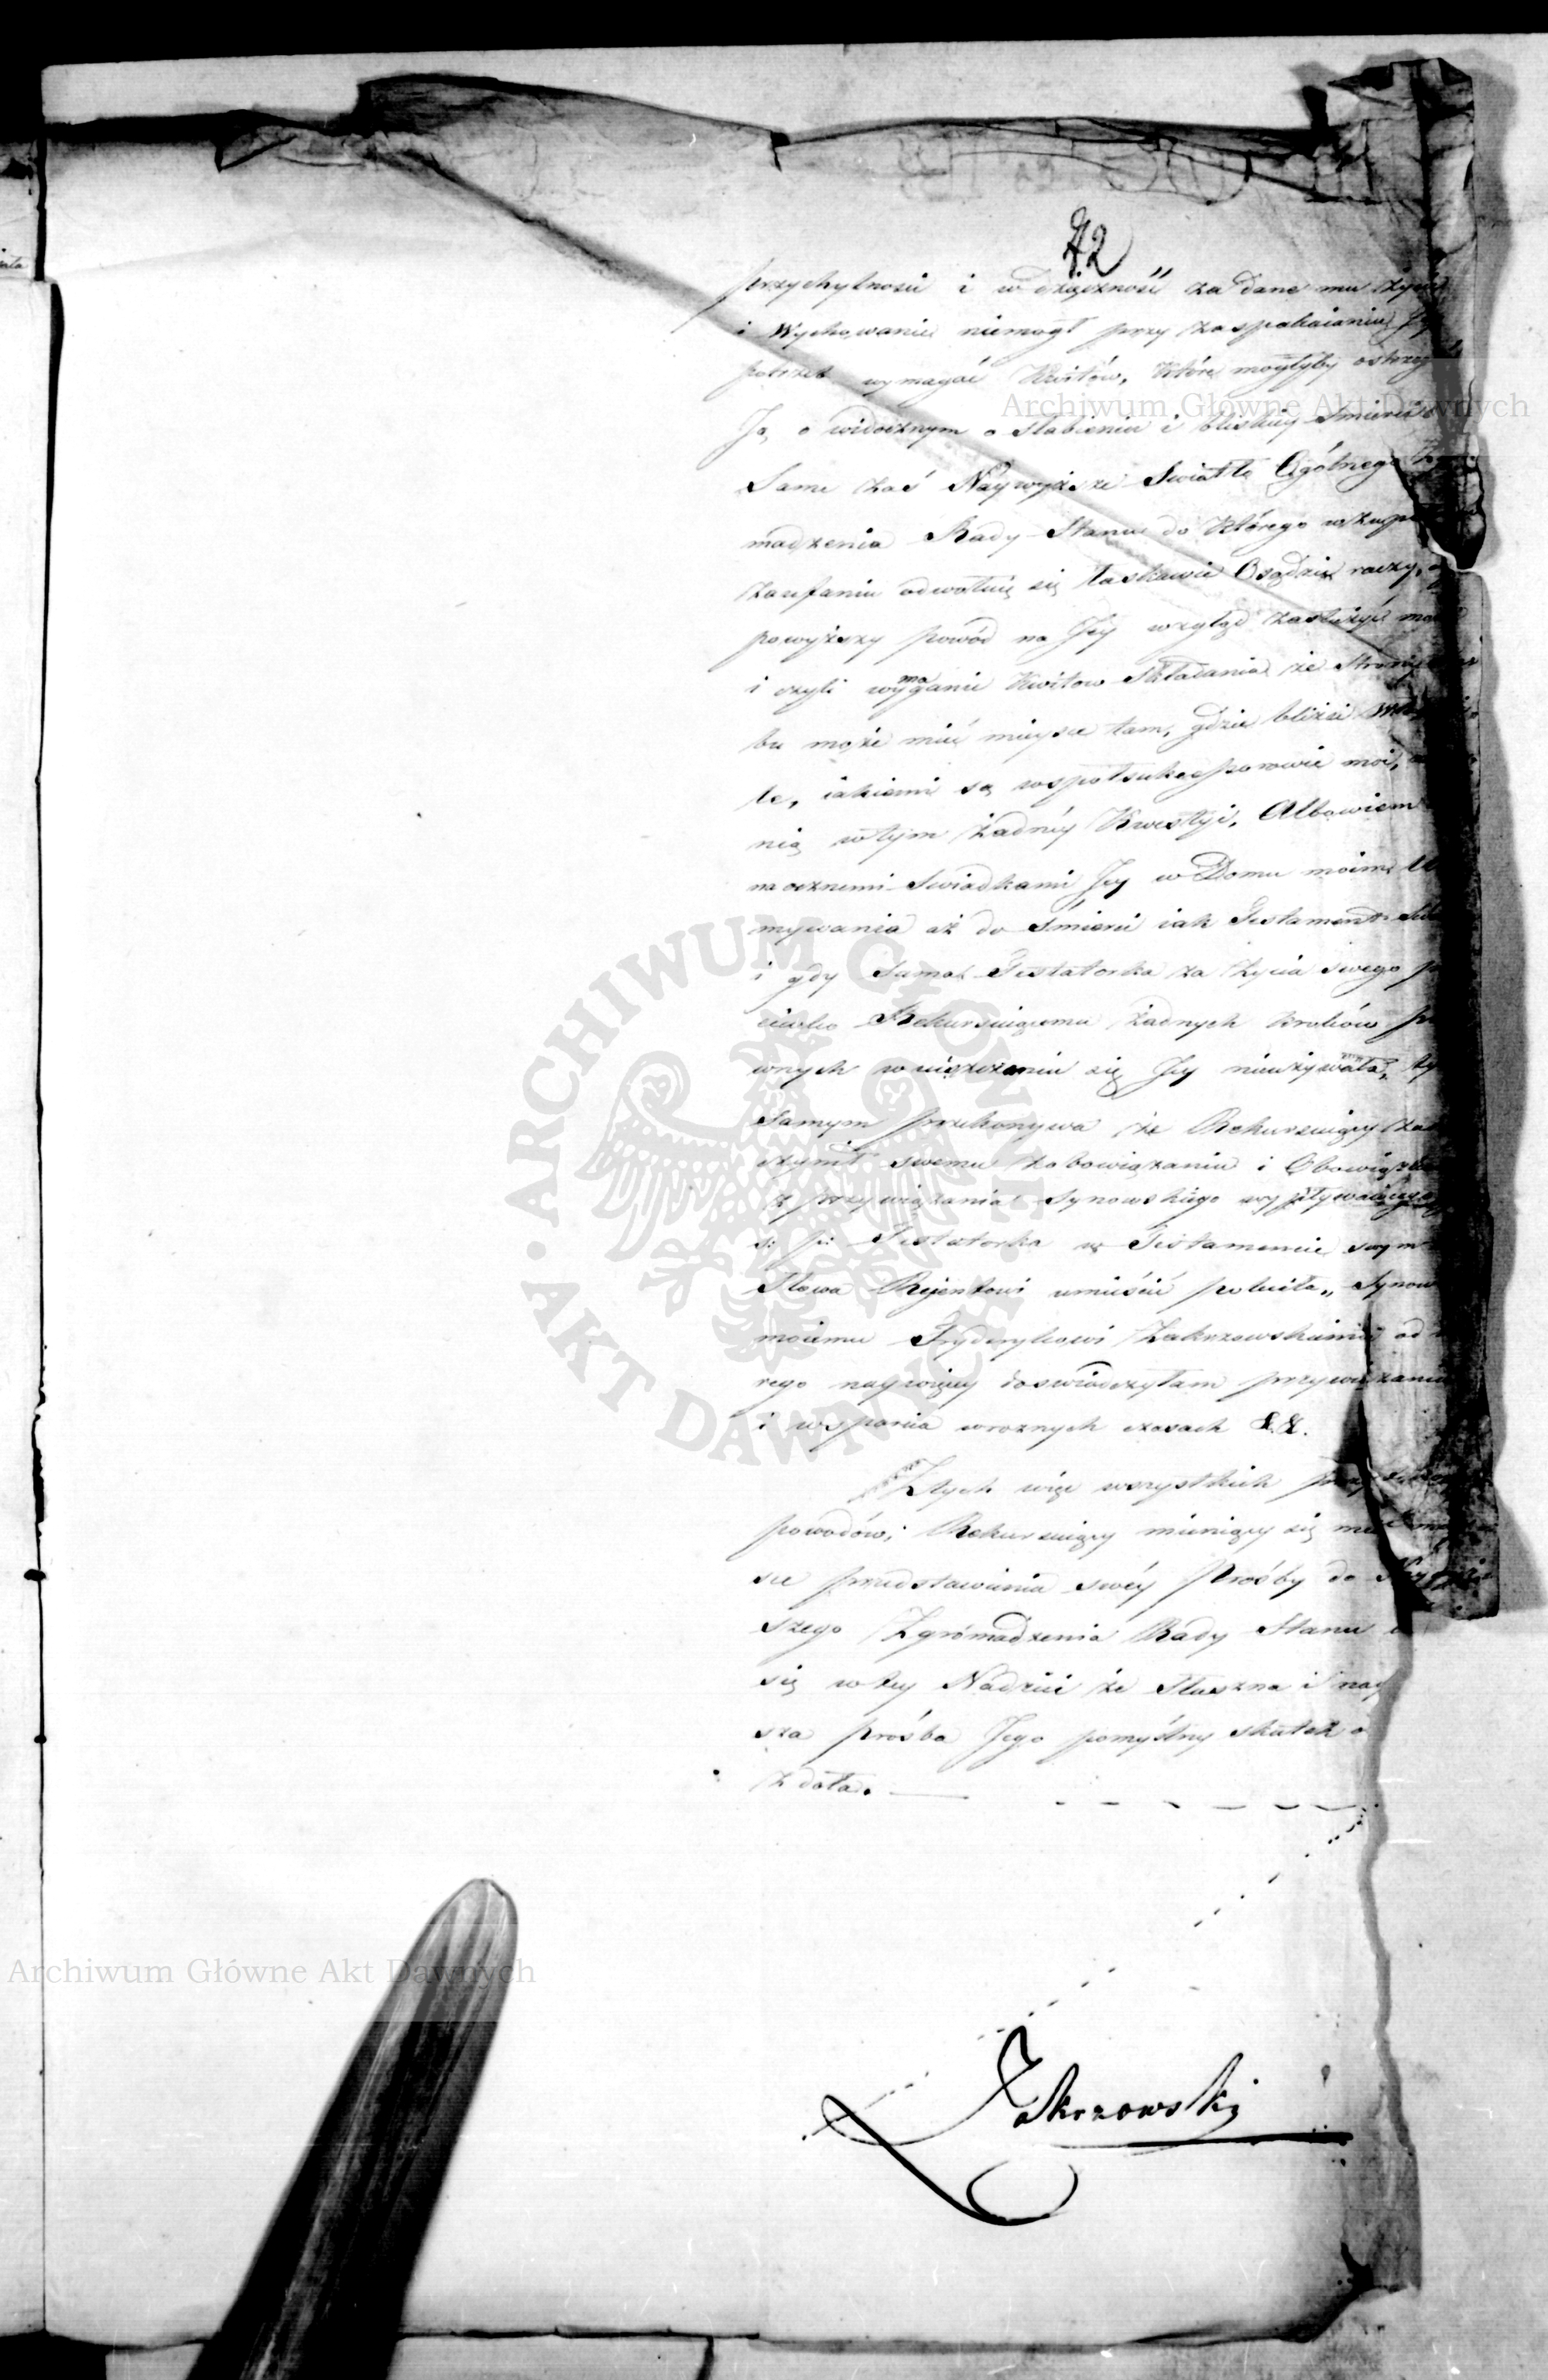 72
przychylności i wdzięczność za dane mu życie
i Wychowanie niemogł przy zaspakaianiu Jey
potrzeb wymagać Kwitów, które mogłyby ostrzegać
Ją o widocznym osłabieniu i bliskiey śmierci
Same zaś Náywyższe Swiatłe Ogólnego Zgro
madzenia Rady Stanu do którego w zupeł
zaufaniu odwołuię się łaskawie Osądzić raczy,
powyższy powód na Jey wzgląd zasłużyć może
i czyli wymaganie Kwitow Składania ze Strony
bu może mieć mieysce tam, gdzie bliżsi
te, iakiemi są współsukcessorowie moi,
nią wtym żadnéy Kwestyi, Albowiem
naocznemi Swiadkami Jey w Domu moim
mywania aż do śmierci iak Testament
i gdy Sama Testatorka za życia swego
ciwko Rekursuiącemu żadnych kroków
wnych w uiszczeniu się Jey nieużywała, ty
samym przekonywa że Rekursuiący
czynił swemu zobowiązaniu i Obowiązko
z przywiązania Synowskiego wypływaiącego
ś: p: Testatorka w Testamencie swym
Słowa Rejentowi umieścić poleciła „ Synowi
moiemu Fryderykowi Zakrzewskiemu od
rego naywięcey doswiadczyłam przywiązania
i wsparcia w roznych czasach &. &.
Z tych więc wszystkich
powodów; Rekursuiący mieniący się
sce przedstawienia swéy Prośby do
szego Zgromadzenia Rady Stanu
się w tey Nadziei że Słuszna i nay
sza prośba Jego pomyślny skutek
zdoła.
Zakrzewski
Archiwum Główne Akt Dawnych
ARCHIWUM GŁÓWNE AKT DAWNYCH
Archiwum Główne Akt Dawnych